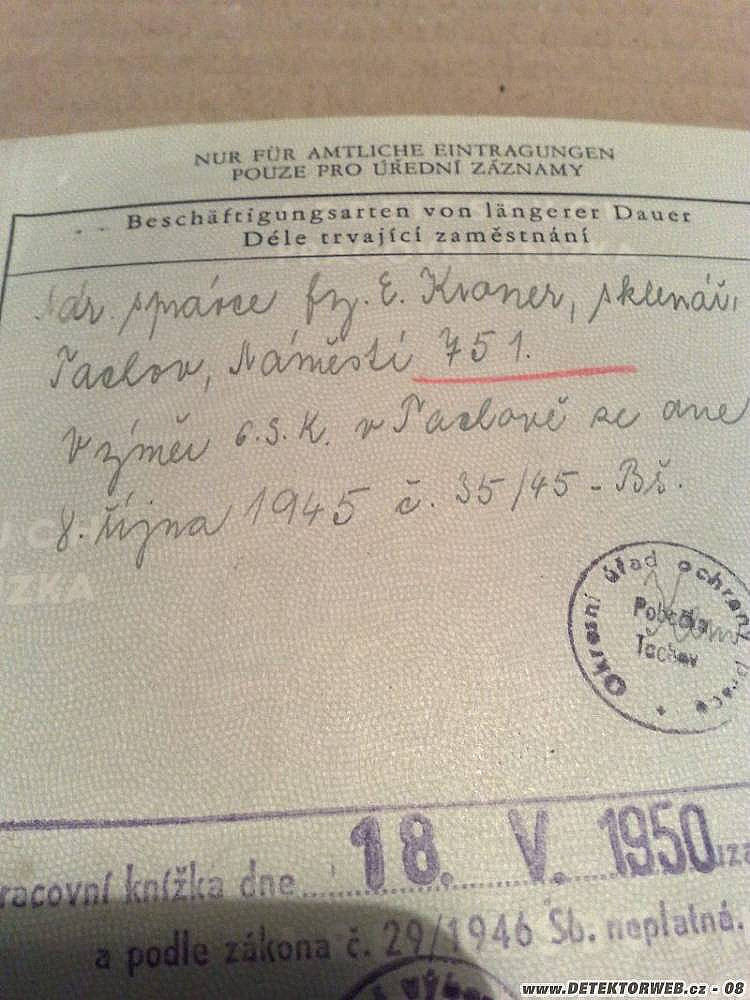 NUR FÜR AMTLICHE EINTRAGUNGEN
POUZE PRO ÚŘEDNÍ ZÁZNAMY
Beschäftigungsarten von längerer Dauer
Déle trvající zaměstnání
Nár. správce fy. E. Kraner, sklenář,
Tachov, Náměstí 751.
Výměr o.s.k. v Tachově ze dne
8. října 1945 č. 35/45 - Bš.
Okresní úřad ochrany práce
Pobočka
Tachov
racovní knížka dne 18. V. 1950
a podle zákona č. 29/1946 Sb. neplatná.
www.DETEKTORWEB.cz - 08